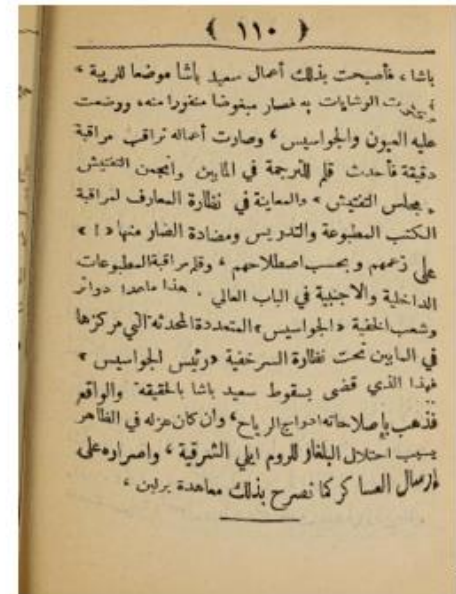 ﴿ ١١٠ ﴾
باشا ، فأصبحت بذلك أعمال سعيد باشا موضعا للريبة ،
الوشايات به فصار مبغوضا منفورا منه، ووضعت
عليه العيون والجواسيس ، وصارت أعماله تراقب مراقبة
دقيقة فأحدث قلم للترجمة في المابين وانجمن التفتيش
« مجلس التفتيش » والمعاينة في نظارة المعارف لمراقبة
الكتب المطبوعة والتدريس ومضادة الضار منها « ! »
على زعمهم وبحسب اصطلاحهم ، وقلم مراقبة المطبوعات
الداخلية والاجنبية في الباب العالي . هذا ماعدا دوائر
وشعب الخفية «الجواسيس» المتعددة المحدثة التي مركزها
في المابين تحت نظارة السرخفية «رئيس الجواسيس »
فهذا الذي قضى بسقوط سعيد باشا بالحقيقة والواقع
فذهب بإصلاحاته ادراج الرياح، وان كان عزله في الظاهر
بسبب احتلال البلغار للروم ايلي الشرقية ، واصراره على
إرسال العساكر كما تصرح بذلك معاهدة برلين ،